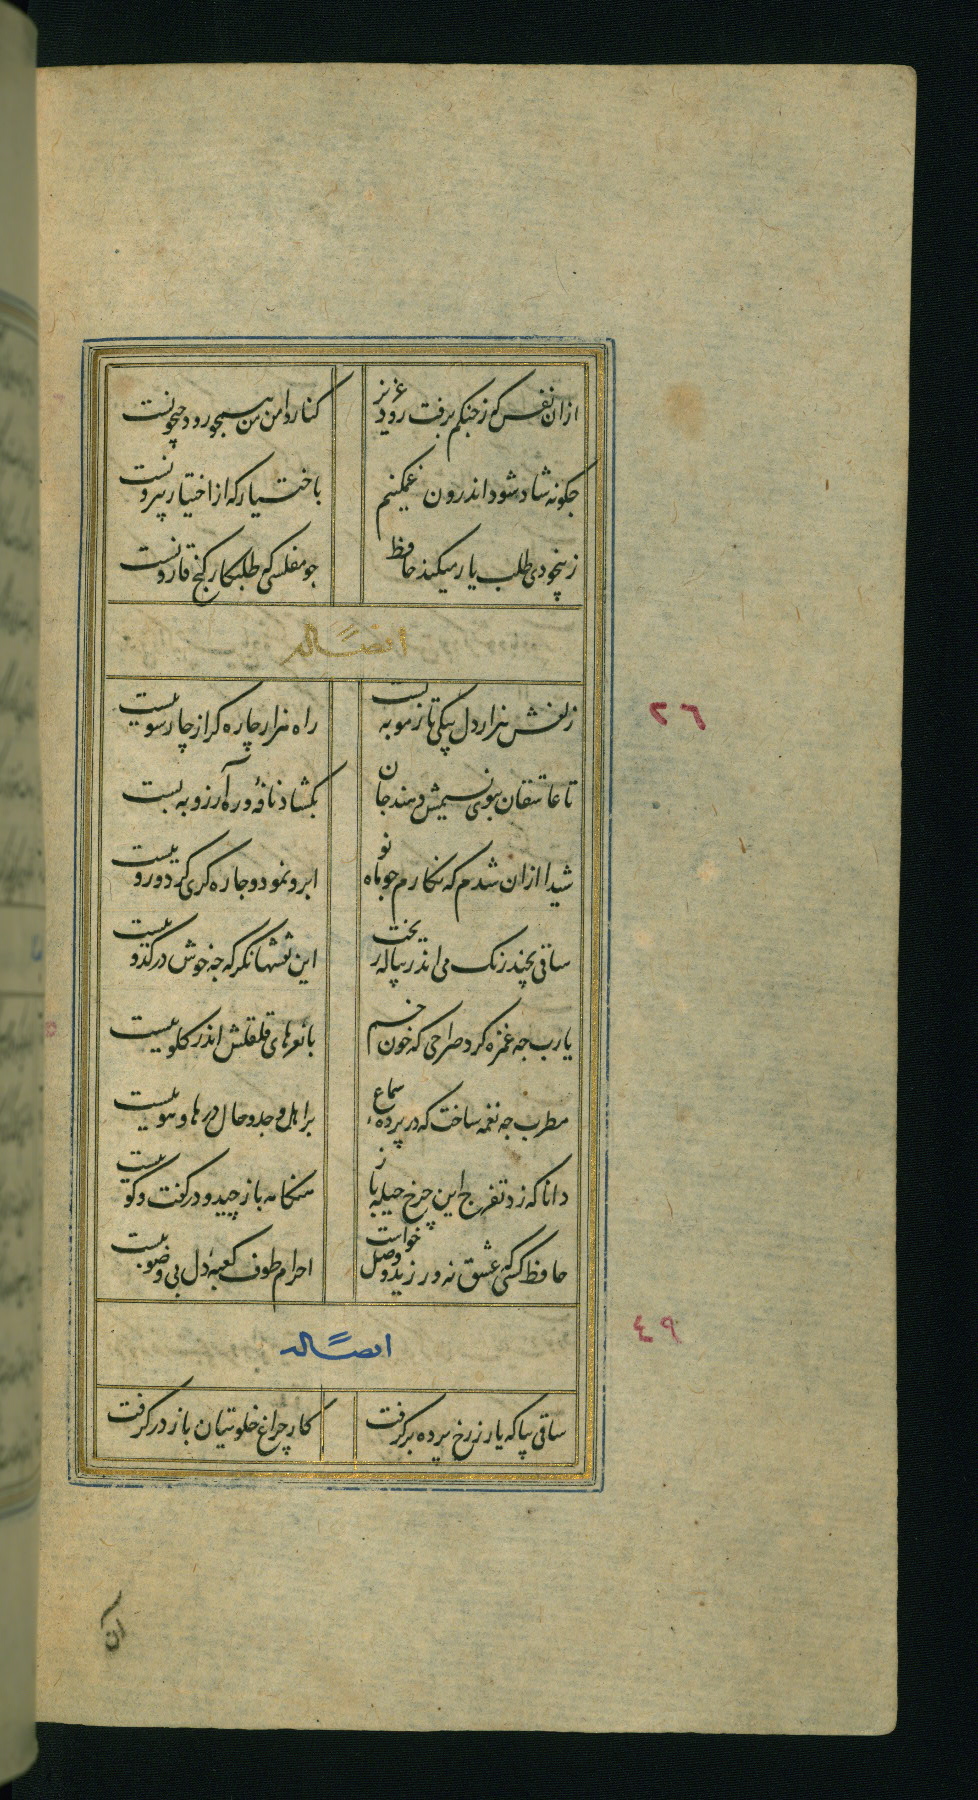 ازان نفس که ز چنکم برفت رود عزیز کنار دامن من همچو رود جیحونست
جکونه شاد شود اندرون غمکینم باختیار که از اختیار بیرونست
ز بیخودی طلب یار میکند حافظ جو مفلسی که طلبکار کنج قارونست
ایضاً له
زلفش هزار دل بیکی تار مو به بست راه هزار چاره کر از چار سو ببست
تا عاشقان ببوی نسیمش دهند جان بکشاد نافهٔ و ره آرزو به بست
شیدا ازان شدم که نکارم جو ماه نو ابرو نمود و جاره کری کرد و رو ببست
ساقی بچند رنک می اندر پیاله ریخت این نقشها نکر که جه خوش در کدو ببست
یارب جه غمزه کرد صراحی که خون خم با نعرهای قلقلش اندر کلو ببست
مطرب جه نغمه ساخت که در پردهٔ سماع بر اهل وجد و حال در های و هو ببست
دانا که زد تفرج این چرخ حیله باز هنکامه باز چید و در کفت و کو ببست
حافظ هر آنکه عشق نه ورزید و وصل خواست احرام طوف کعبهٔ دل بی وضو ببست
ایضاً له
ساقی بیا که یار ز رخ پرده برکرفت کار چراغ خلوتیان باز در کرفت
آن
٢٦
٤٩